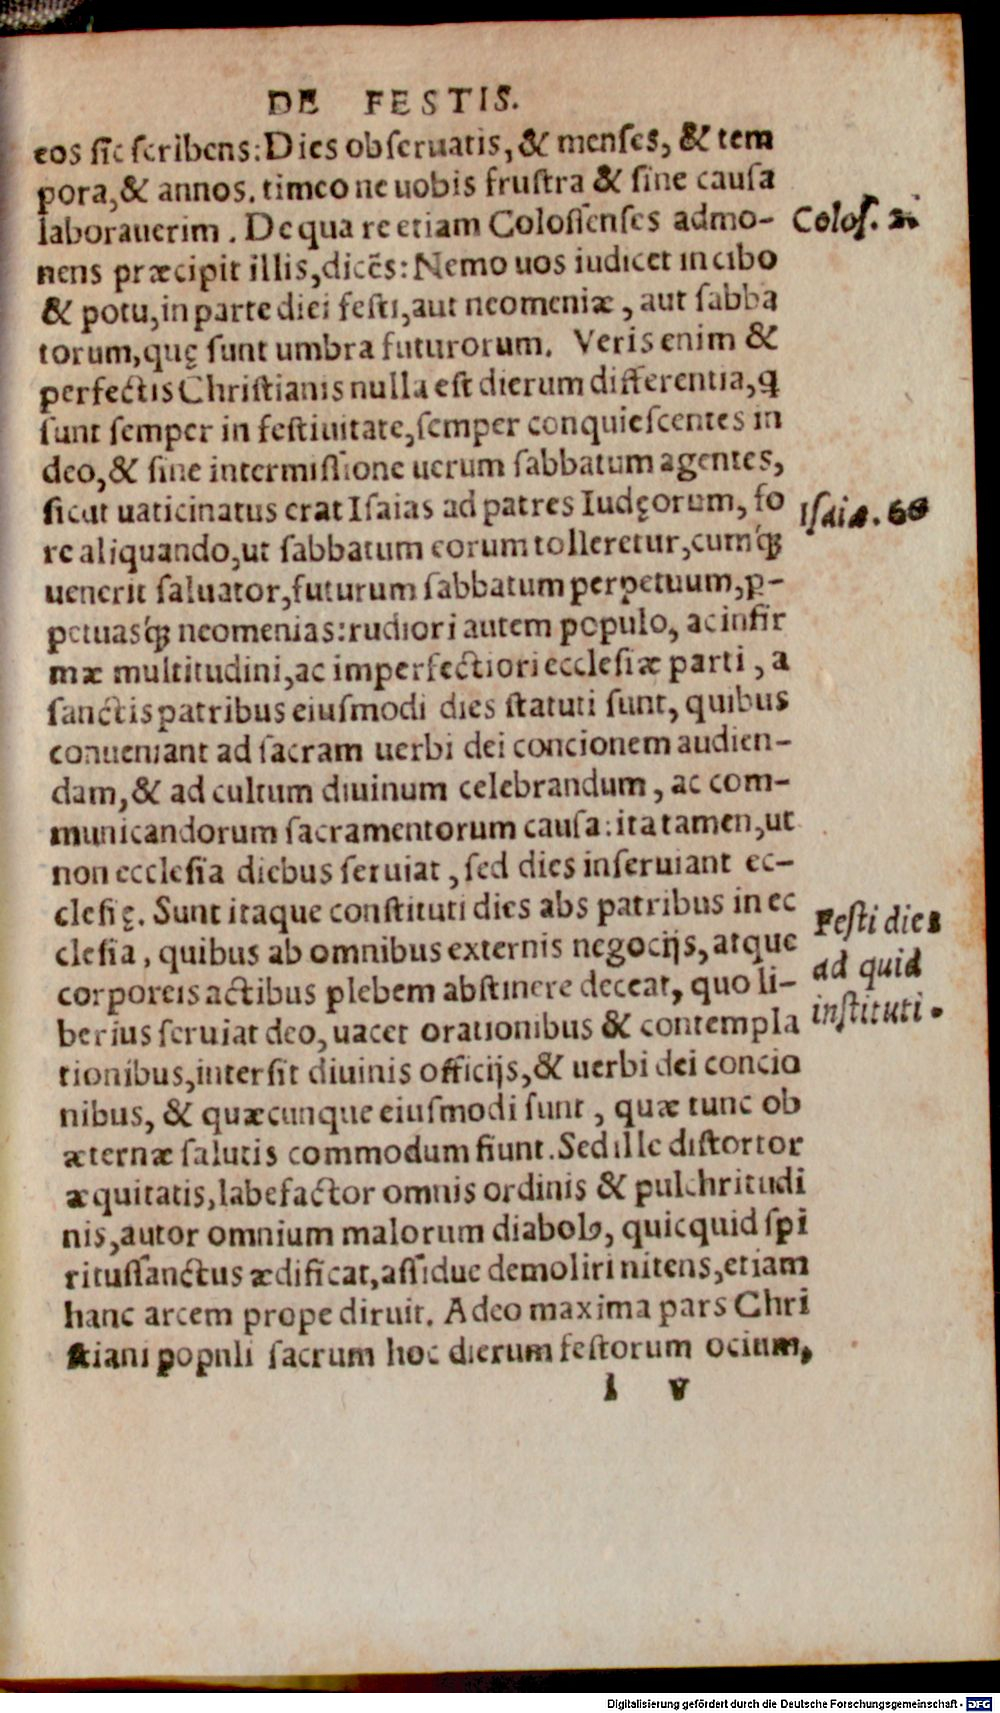 DE FESTIS.
eos sic scribens: Dies obseruatis, & menses, & tem
pora, & annos. timeo ne uobis frustra & sine causa
laborauerim. De qua re etiam Colossenses admo-
Colos. 2.
nens præcipit illis, dicẽs: Nemo uos iudicet in cibo
& potu, in parte diei festi, aut neomeniæ, aut sabba
torum, quę sunt umbra futurorum. Veris enim &
perfectis Christianis nulla est dierum differentia, q
sunt semper in festiuitate, semper conquiescentes in
deo, & sine intermissione uerum sabbatum agentes,
sicut uaticinatus erat Isaias ad patres Iudęorum, fo
Isaiæ. 66
re aliquando, ut sabbatum eorum tolleretur, cumq́;
uenerit saluator, futurum sabbatum perpetuum, ꝑ-
petuasq́; neomenias: rudiori autem populo, ac infir
mæ multitudini, ac imperfectiori ecclesiæ parti, a
sanctis patribus eiusmodi dies statuti sunt, quibus
conueniant ad sacram uerbi dei concionem audien-
dam, & ad cultum diuinum celebrandum, ac com-
municandorum sacramentorum causa: ita tamen, ut
non ecclesia diebus seruiat, sed dies inseruiant ec-
clesię. Sunt itaque constituti dies abs patribus in ec
Festi dies
clesia, quibus ab omnibus externis negocijs, atque
ad quid
corporeis actibus plebem abstinere deceat, quo li-
instituti.
berius seruiat deo, uacet orationibus & contempla
tionibus, intersit diuinis officijs, & uerbi dei concio
nibus, & quæcunque eiusmodi sunt, quæ tunc ob
æternæ salutis commodum fiunt. Sed ille distortor
æquitatis, labefactor omnis ordinis & pulchritudi
nis, autor omnium malorum diabolꝰ, quicquid spi
ritussanctus ædificat, assidue demoliri nitens, etiam
hanc arcem prope diruit. Adeo maxima pars Chri
stiani populi sacrum hoc dierum festorum ocium,
l v
Digitalisierung gefördert durch die Deutsche Forschungsgemeinschaft - DFG